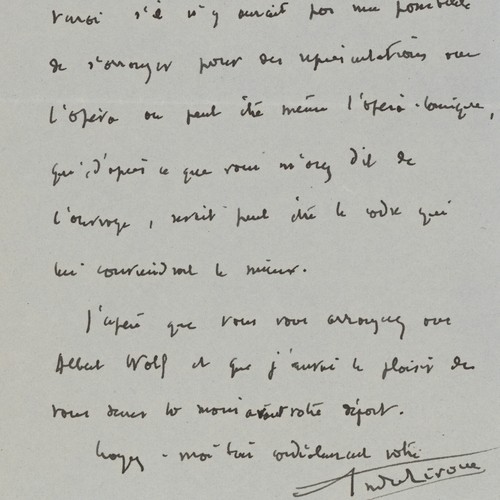 s'il n'y aurait pas une possibilité
de s'arranger pour des représentations avec
l'Opéra ou peut être même l'Opéra-Comique,
qui, d'après ce que vous m'avez dit de
l'ouvrage, serait peut être le cadre qui
lui conviendrait le mieux.
J'espère que vous vous arrangerez avec
Albert Wolf et que j'aurai le plaisir de
vous serrer la main avant votre départ.
Croyez-moi bien cordialement votre